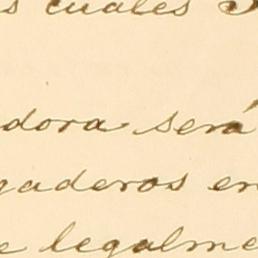 s cuales
dora será
gaderos en
e legalme